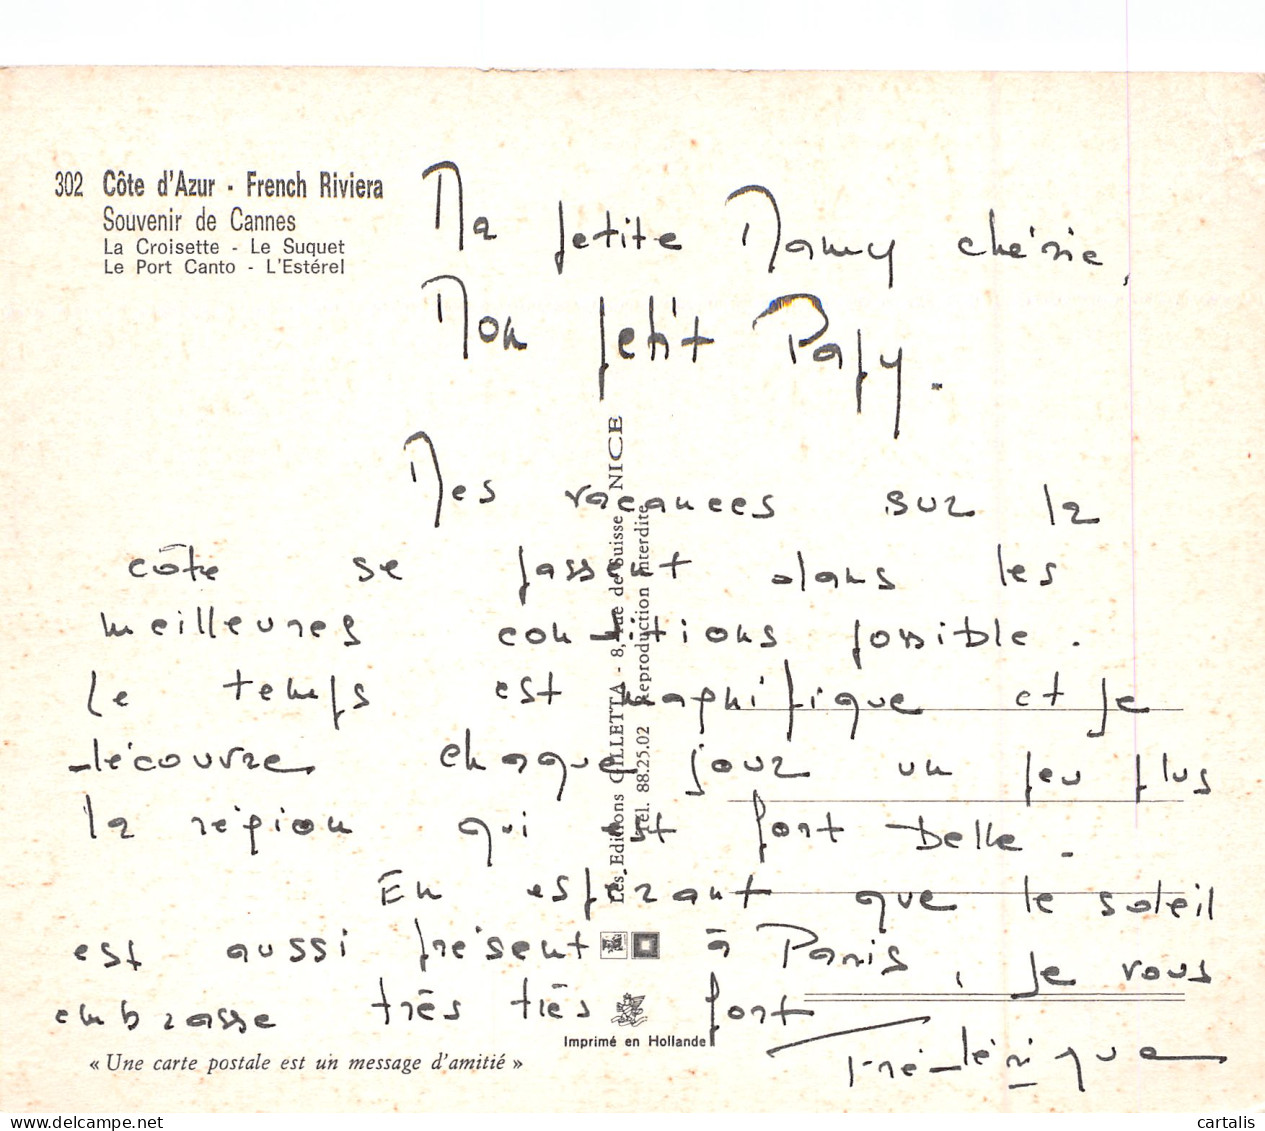 302 Côte d'Azur - French Riviera
Souvenir de Cannes
La Croisette - Le Suquet
Le Port Canto - L'Estérel
Ma petite Mamy chérie,
Mon petit Papy.
Mes vacances sur la
côte se passent dans les
meilleures conditions possible.
Le temps est magnifique et je
découvre chaque jour un peu plus
la région qui est fort belle.
En espérant que le soleil
est aussi présent à Paris, je vous
embrasse très très fort
Frédérique
Les Editions GILLETTA - 8, rue de Suisse NICE
Tél. 88.25.02 Reproduction interdite
Imprimé en Hollande
« Une carte postale est un message d'amitié »
cartalis